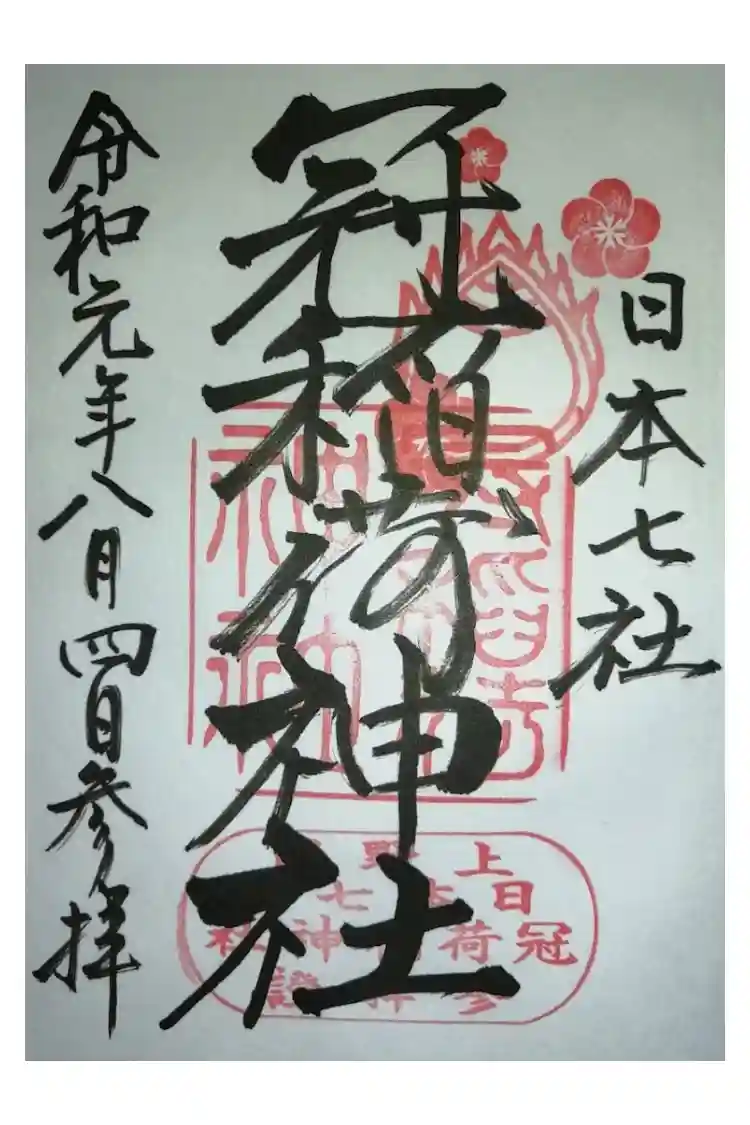 日本七社
冠稲荷神社
令和元年八月四日参拝
上野
日七
冠荷神社
参拝證